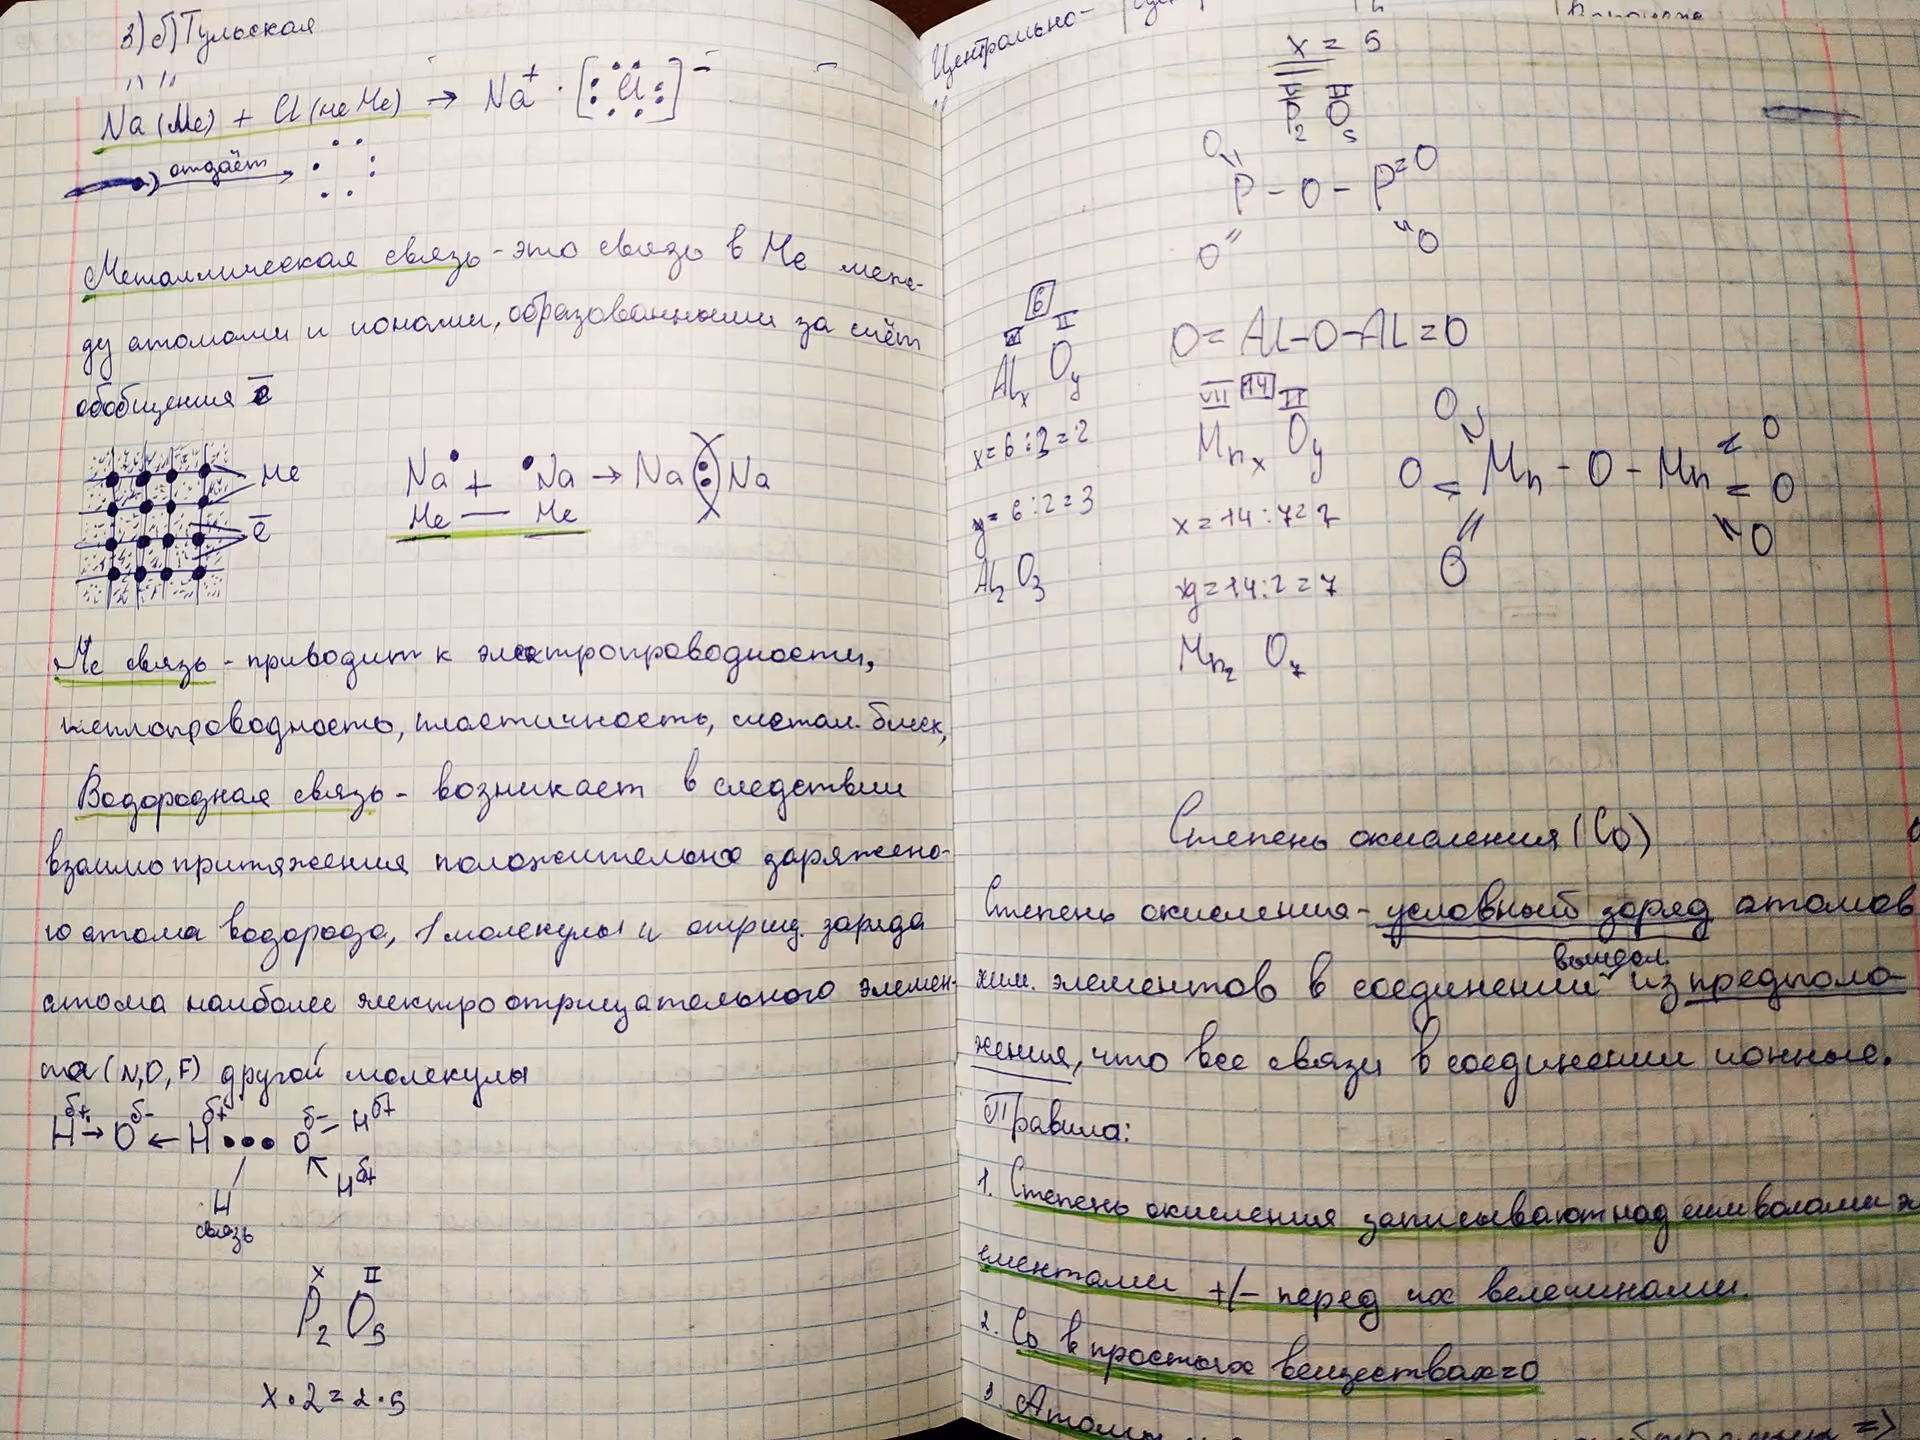 3) б) Тульская
〃 〃
Na (Me) + Cl (не Me) → Na⁺ · [:Cl:]⁻
отдаёт
Металлическая связь - это связь в Me меж-
ду атомами и ионами, образованными за счёт
обобщения e̅
Me
e̅
Na• + •Na → Na(:)Na
Me — Me
Me связь - приводит к электропроводности,
теплопроводность, пластичность, метал. блеск,
Водородная связь - возникает в следствии
взаимопритяжения положительно заряжено-
го атома водорода, 1 молекулы и отриц. заряда
атома наиболее электроотрицательного элемен-
та (N, O, F) другой молекулы
H^δ+ → O^δ- ← H^δ+ ••• O^δ- – H^δ+
H^δ+
H
связь
x II
P₂ O₅
x · 2 = 2 · 5
Центрально-
x = 5
V II
P₂ O₅
O
P - O - P = O
O O
6
III II
Alₓ Oᵧ
x = 6 : 3 = 2
y = 6 : 2 = 3
Al₂ O₃
O = Al - O - Al = O
VII 14 II
Mnₓ Oᵧ
x = 14 : 7 = 2
y = 14 : 2 = 7
Mn₂ O₇
O O
O = Mn - O - Mn = O
O O
Степень окисления (Co)
Степень окисления - условный заряд атомов
хим. элементов в соединении из предполо-
жения, что все связи в соединении ионные.
Правила:
1. Степень окисления записывают над символами э
лементами +/- перед их велечинами.
2. Co в простых веществах = 0
3. Атомы
=>